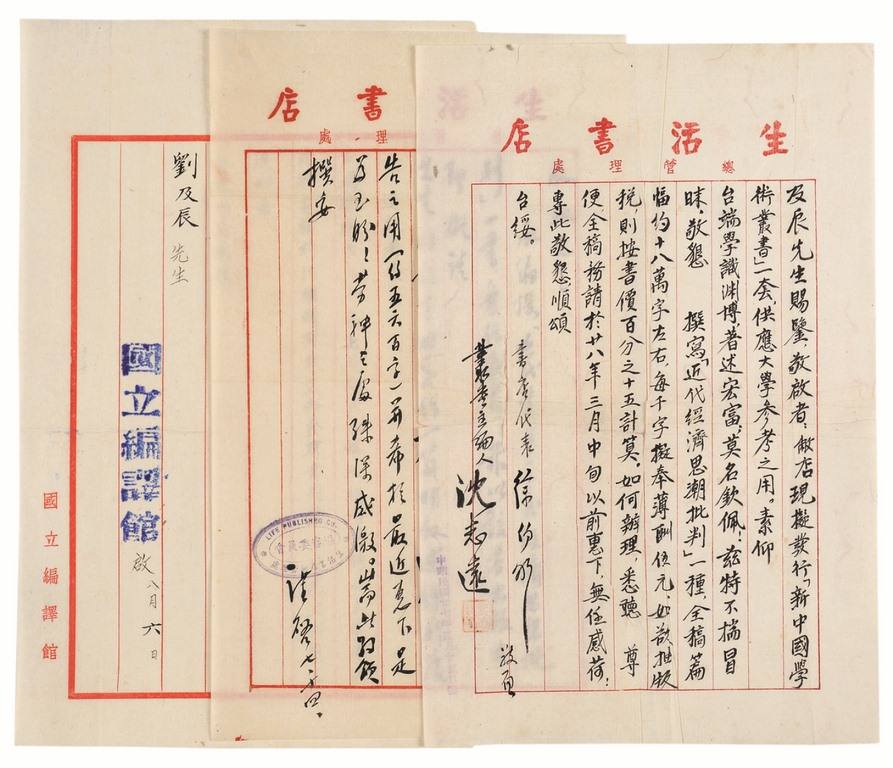 生活書店
總管理處
及辰先生賜鑒，敬啟者：敝店現擬發行「新中國學
術叢書」一套，供應大學參考之用。素仰
台端學識渊博，著述宏富，莫名欽佩；兹特不揣冒
昧，敬懇　撰寫「近代經濟思潮批判」一種，全稿篇
幅約十八萬字左右，每千字擬奉薄酬伍元，如欲抽版
稅，則按書價百分之十五計算。如何辦理，悉聽　尊
便全稿務請於廿八年三月中旬以前惠下，無任感荷；
專此敬懇順頌
台綏。
書店代表 徐伯昕
叢書主編人 沈志遠
書店
理處
告之用（約五六百字）并希於最近惠下是
勞神之處殊深感激。耑此敬頌
撰安
七、十四、
LIFE PUBLISHING CO.
劉及辰 先生
國立編譯館
啟 八月六日
國立編譯館